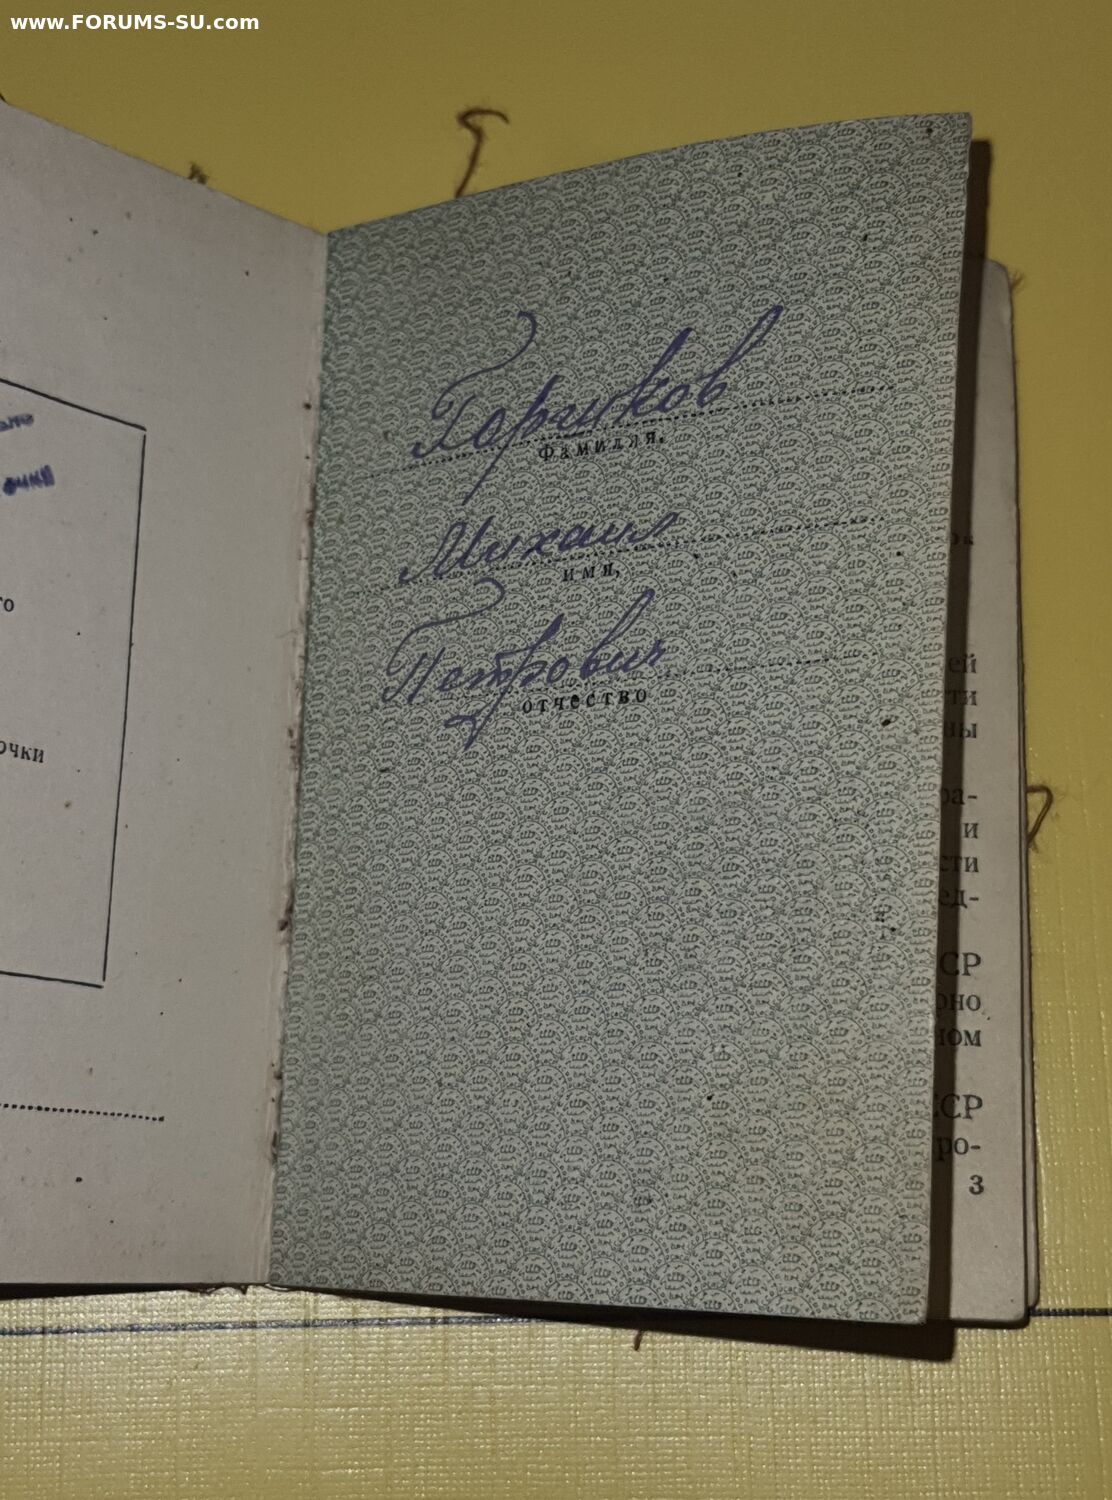 www.FORUMS-SU.com
го
очки
Горшков
фамилия,
Михаил
имя,
Петрович
отчество
ей
ти
ны
ра-
и
сти
ед-
СР
рно
ном
ССР
ро-
3